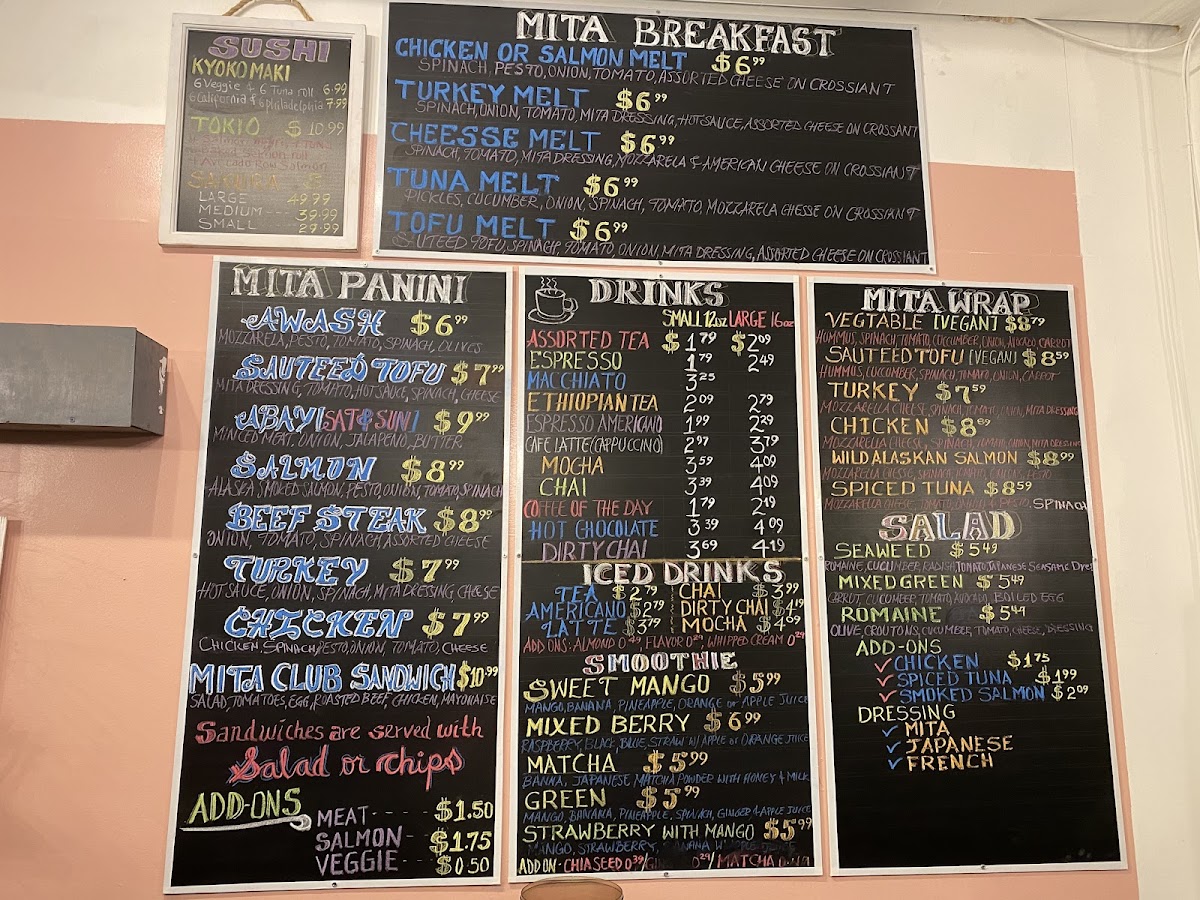 SUSHI
KYOKO MAKI
6 Veggie & 6 Tuna roll 6.99
6 California & 6 philadelphia 7.99
TOKIO $10.99
LARGE 49.99
MEDIUM --- 39.99
SMALL --- 27.99
MITA BREAKFAST
CHICKEN OR SALMON MELT $6.99
SPINACH, PESTO, ONION, TOMATO, ASSORTED CHEESE ON CROSSIANT
TURKEY MELT $6.99
SPINACH, ONION, TOMATO, MITA DRESSING, HOT SAUCE, ASSORTED CHEESE ON CROSSANT
CHEESSE MELT $6.99
SPINACH, TOMATO, MITA DRESSING, MOZZARELA & AMERICAN CHEESE ON CROSSIANT
TUNA MELT $6.99
PICKLES, CUCUMBER, ONION, SPINACH, TOMATO, MOZZARELA CHESSE ON CROSSIANT
TOFU MELT $6.99
SAUTEED TOFU, SPINACH, TOMATO, ONION, MITA DRESSING, ASSORTED CHEESE ON CROSSIANT
MITA PANINI
AWASH $6.99
MOZZARELA, PESTO, TOMATO, SPINACH, OLIVES
SAUTEED TOFU $7.99
MITA DRESSING, TOMATO, HOT SAUCE, SPINACH, CHEESE
ABAY [SAT & SUN] $9.99
MINCED MEAT, ONION, JALAPENO, BUTTER
SALMON $8.99
ALASKA SMOKED SALMON, PESTO, ONION, TOMATO, SPINACH
BEEF STEAK $8.99
ONION, TOMATO, SPINACH, ASSORTED CHEESE
TURKEY $7.99
HOT SAUCE, ONION, SPINACH, MITA DRESSING CHEESE
CHICKEN $7.99
CHICKEN, SPINACH, PESTO, ONION, TOMATO, CHEESE
MITA CLUB SANDWICH $10.99
SALAD, TOMATOES, EGG, ROASTED BEEF, CHICKEN, MAYONAISE
Sandwiches are served with
Salad or chips
ADD-ONS
MEAT --- $1.50
SALMON -- $1.75
VEGGIE --- $0.50
DRINKS
SMALL 12oz LARGE 16oz
ASSORTED TEA $1.79 $2.09
ESPRESSO 1.79 2.49
MACCHIATO 3.25
ETHIOPIAN TEA 2.09 2.79
ESPRESSO AMERICANO 1.99 2.29
CAFE LATTE (CAPPUCCINO) 2.97 3.79
MOCHA 3.59 4.09
CHAI 3.39 4.09
COFFEE OF THE DAY 1.79 2.19
HOT CHOCOLATE 3.39 4.09
DIRTY CHAI 3.69 4.19
ICED DRINKS
TEA $2.79 CHAI $3.99
AMERICANO $2.79 DIRTY CHAI $4.19
LATTE $3.79 MOCHA $4.09
ADD ONS: ALMOND FLAVOR WHIPPED CREAM
SMOOTHIE
SWEET MANGO $5.99
MANGO, BANANA, PINEAPPLE, ORANGE or APPLE JUICE
MIXED BERRY $6.99
RASPBERRY, BLACK, BLUE, STRAW W/ APPLE or ORANGE JUICE
MATCHA $5.99
JAPANESE MATCHA POWDER WITH HONEY & MILK
GREEN $5.99
MANGO, BANANA, PINEAPPLE, SPINACH, GINGER & APPLE JUICE
STRAWBERRY WITH MANGO $5.99
MANGO, STRAWBERRY, BANANA
ADD ON - CHIA SEED 0.39 / MATCHA
MITA WRAP
VEGTABLE [VEGAN] $8.79
HUMMUS, SPINACH, TOMATO, CUCCUMBER, ONION, AVOCADO, CARROT
SAUTEED TOFU [VEGAN] $8.59
HUMMUS, CUCUMBER, SPINACH, TOMATO, ONION, CARROT
TURKEY $7.59
MOZZARELLA CHEESE, SPINACH, TOMATO, ONION, MITA DRESSING
CHICKEN $8.69
MOZZARELLA CHEESE, SPINACH, TOMATO, ONION, MITA DRESSING
WILD ALASKAN SALMON $8.99
MOZZARELLA CHEESE, SPINACH, TOMATO, ONION, PESTO
SPICED TUNA $8.59
MOZZARELLA CHEESE, TOMATO, SPINACH
SALAD
SEAWEED $5.49
ROMAINE, CUCUMBER, RADISH, TOMATO, JAPANESE
MIXED GREEN $5.49
CARROT, CUCUMBER, TOMATO, AVOCADO, BOILED EGG
ROMAINE $5.49
OLIVE, CROUTONS, CUCUMBER, TOMATO, CHEESE, DRESSING
ADD-ONS
CHICKEN $1.75
SPICED TUNA $1.99
SMOKED SALMON $2.09
DRESSING
MITA
JAPANESE
FRENCH